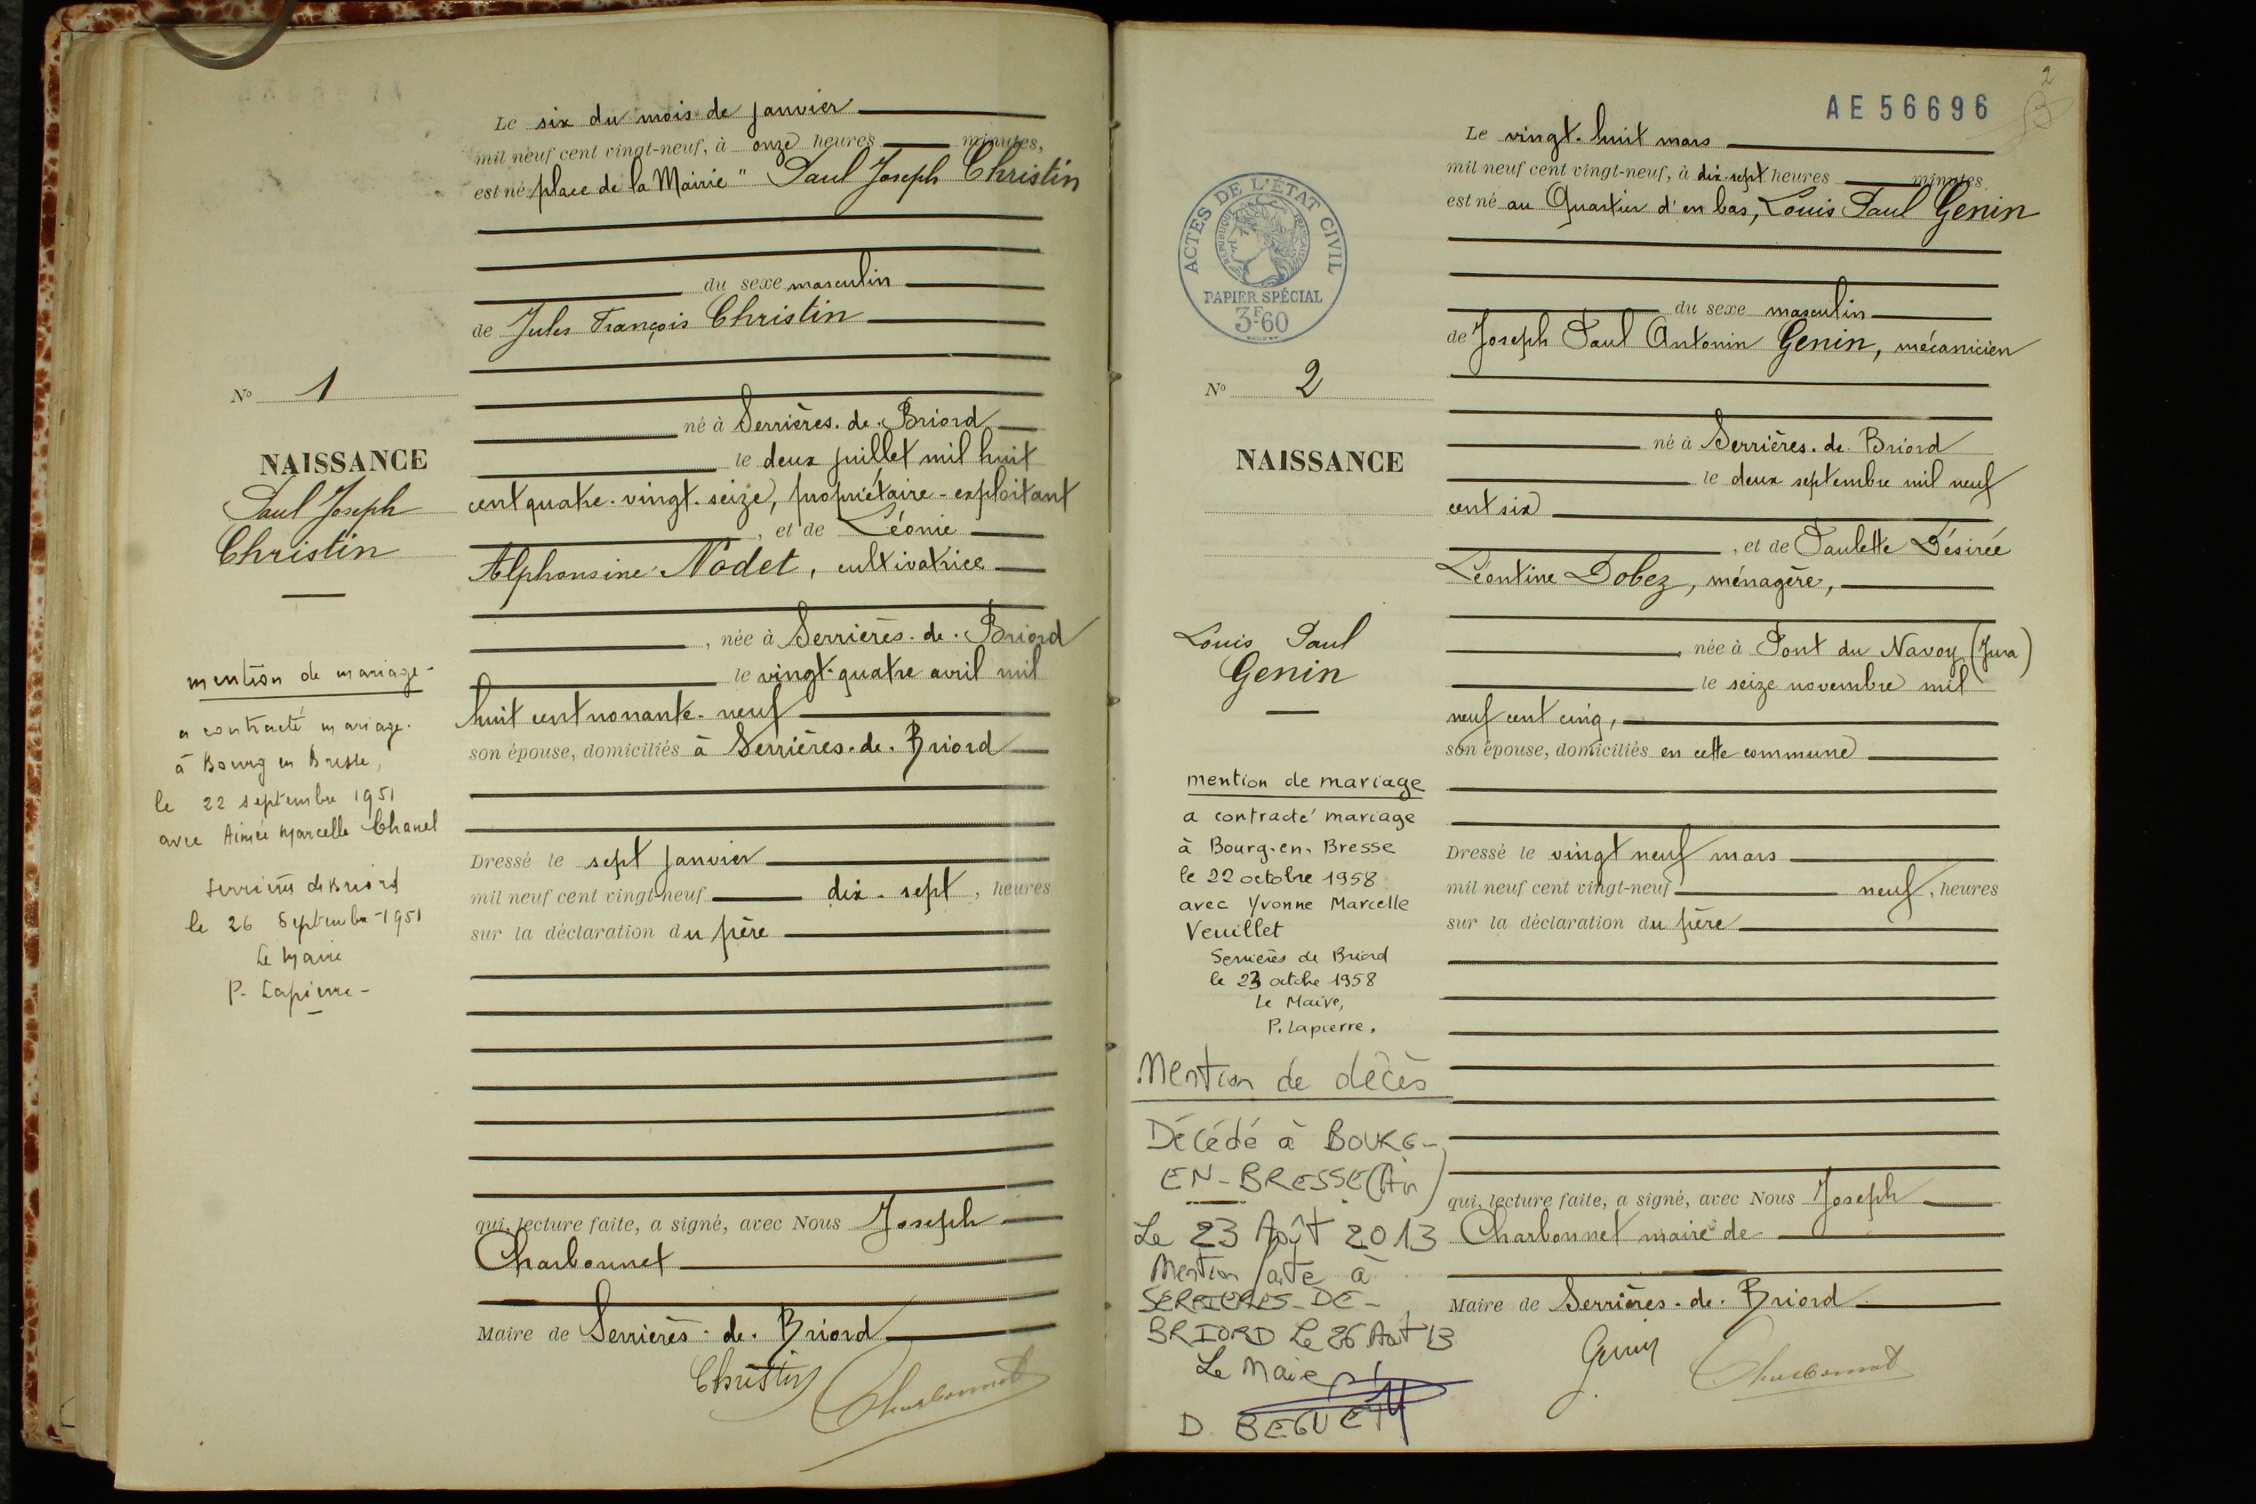 Le six du mois de janvier
mil neuf cent vingt-neuf, à onze heures minutes,
est né "place de la Mairie" Paul Joseph Christin
du sexe masculin
de Jules François Christin
né à Serrières-de-Briord
le deux juillet mil huit
cent quatre-vingt-seize, propriétaire-exploitant
, et de Léonie
Alphonsine Nodet, cultivatrice
, née à Serrières-de-Briord
le vingt-quatre avril mil
huit cent nonante-neuf
son épouse, domiciliés à Serrières-de-Briord
Dressé le sept janvier
mil neuf cent vingt-neuf dix-sept, heures
sur la déclaration du père
qui, lecture faite, a signé, avec Nous Joseph
Charbonnet
Maire de Serrières-de-Briord
Christin Charbonnet
No 1
NAISSANCE
Paul Joseph
Christin
mention de mariage-
a contracté mariage.
à Bourg en Bresse,
le 22 septembre 1951
avec Aimée Marcelle Chanel
Serrières de Briord
le 26 Septembre 1951
Le Maire
P. Lapierre-
2
AE 56696
Le vingt-huit mars
mil neuf cent vingt-neuf, à dix-sept heures minutes
est né au Quartier d'en bas, Louis Paul Genin
du sexe masculin
de Joseph Paul Antonin Genin, mécanicien
né à Serrières-de-Briord
le deux septembre mil neuf
cent six
, et de Paulette Désirée
Léontine Dobez, ménagère,
née à Pont du Navoy (Jura)
le seize novembre mil
neuf cent cinq,
son épouse, domiciliés en cette commune
Dressé le vingt neuf mars
mil neuf cent vingt-neuf neuf, heures
sur la déclaration du père
qui, lecture faite, a signé, avec Nous Joseph
Charbonnet maire de
Maire de Serrières-de-Briord
Genin Charbonnet
ACTES DE L'ÉTAT CIVIL
RÉPUBLIQUE FRANÇAISE
PAPIER SPÉCIAL
3F60
No 2
NAISSANCE
Louis Paul
Genin
mention de mariage
a contracté mariage
à Bourg-en-Bresse
le 22 octobre 1958
avec Yvonne Marcelle
Veuillet
Serrières de Briord
le 23 octobre 1958
Le Maire,
P. Lapierre.
Mention de décès
Décédé à BOURG-
EN-BRESSE (Ain)
Le 23 Août 2013
Mention faite à
SERRIERES-DE-
BRIORD Le 26 Août 13
Le Maire
D BEGUET